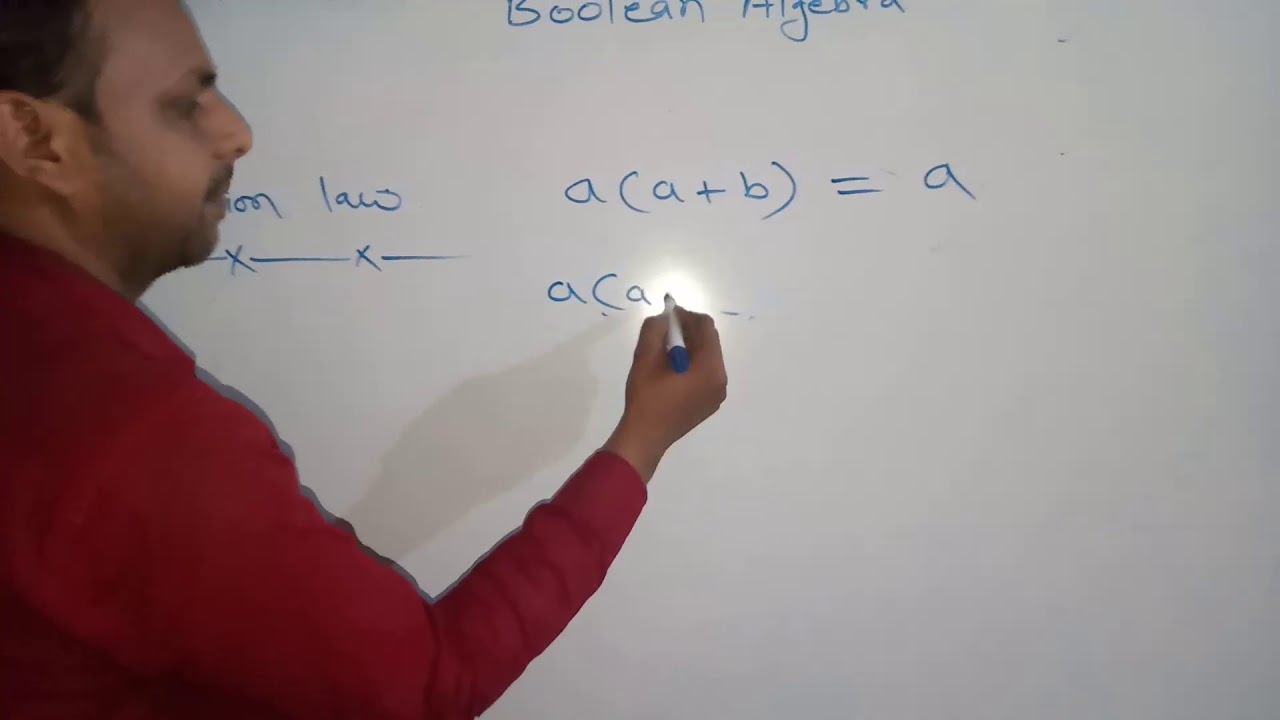 Boolean Algebra
law a(a+b) = a
a(a